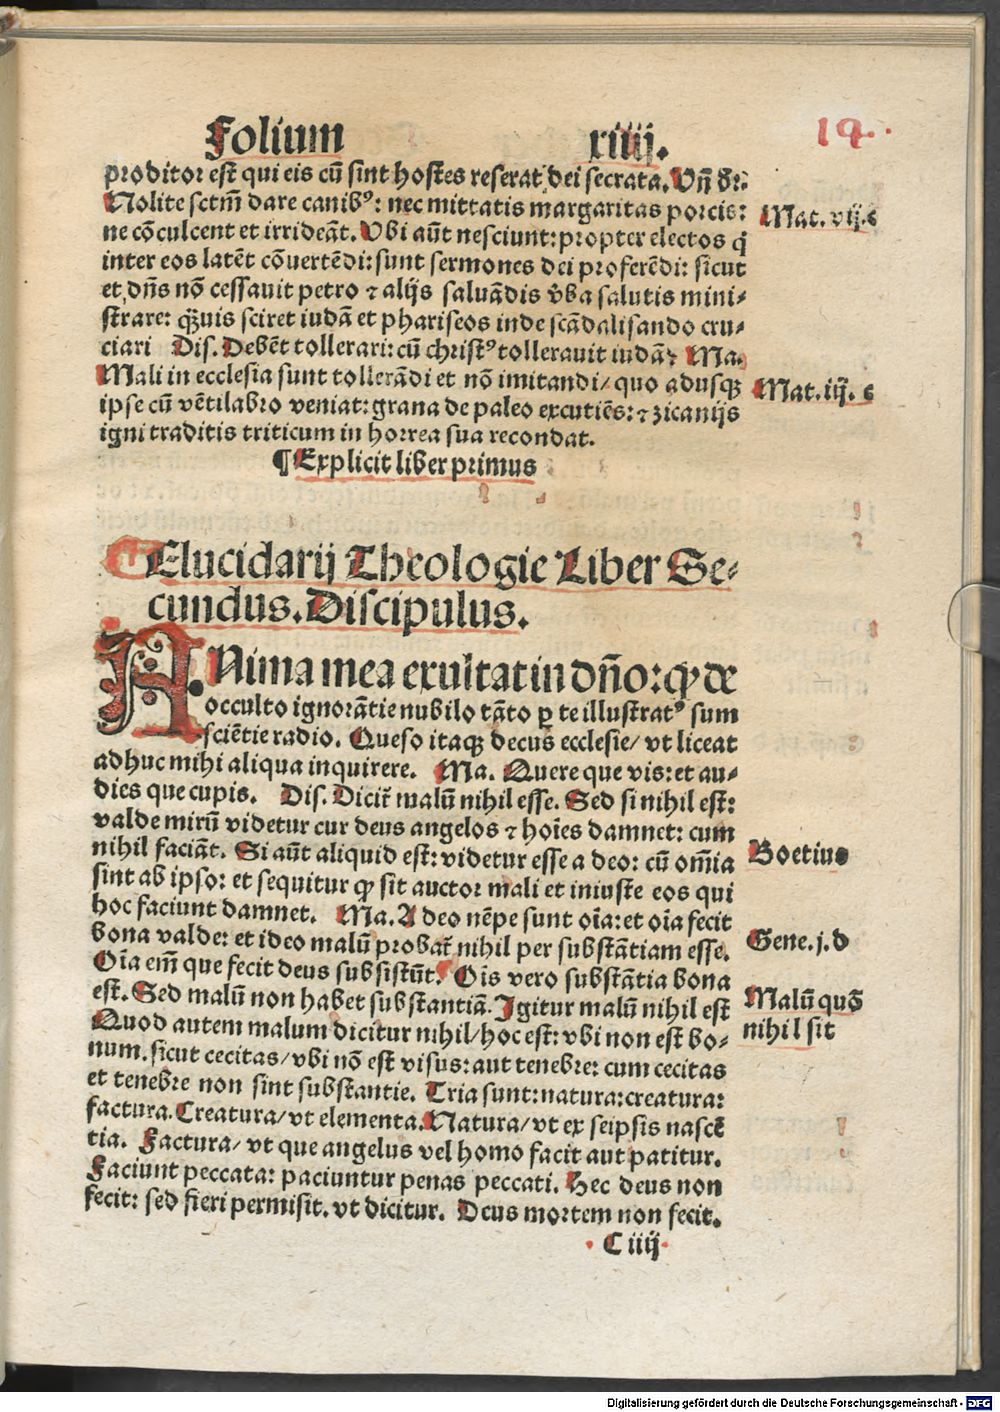 Folium xiiij.
14.
proditor est qui eis cū sint hostes reserat dei secrata. Vn̄ dr̄:
Nolite sctm̄ dare canibꝰ: nec mittatis margaritas porcis:
Mat. vij. c
ne cōculcent et irrideāt. Ubi aūt nesciunt: propter electos q̄
inter eos latēt cōuertēdi: sunt sermones dei proferēdi: sicut
et dn̄s nō cessauit petro ⁊ alijs saluādis v̄ba salutis mini⸗
strare: q̄uis sciret iudā et phariseos inde scādalisando cru⸗
ciari Dis. Debēt tollerari: cū christꝰ tollerauit iudā? Ma.
Mali in ecclesia sunt tollerādi et nō imitandi/ quo adusqꝫ
Mat. iij. c
ipse cū vētilabro veniat: grana de paleo excutiēs: ⁊ zicanijs
igni traditis triticum in horrea sua recondat.
¶ Explicit liber primus
Elucidarij Theologie Liber Se⸗
cundus. Discipulus.
ANima mea exultat in dn̄o: qꝙ de
occulto ignorātie nubilo tāto ꝑ te illustratꝰ sum
sciētie radio. Queso itaqꝫ decus ecclesie/ vt liceat
adhuc mihi aliqua inquirere. Ma. Quere que vis: et au⸗
dies que cupis. Dis. Dicit̄ malū nihil esse. Sed si nihil est:
valde mirū videtur cur deus angelos ⁊ hoīes damnet: cum
nihil faciāt. Si aūt aliquid est: videtur esse a deo: cū om̄ia
Boetius
sint ab ipso: et sequitur ꝙ sit auctor mali et iniuste eos qui
hoc faciunt damnet. Ma. A deo nēpe sunt oīa: et oīa fecit
Gene. j. d
bona valde: et ideo malū probat̄ nihil per substātiam esse.
Oīa em̄ que fecit deus subsistūt. Oīs vero substātia bona
est. Sed malū non habet substantiā. Igitur malū nihil est
Malū quō
nihil sit
Quod autem malum dicitur nihil/ hoc est: vbi non est bo⸗
num. sicut cecitas/ vbi nō est visus: aut tenebre: cum cecitas
et tenebre non sint substantie. Tria sunt: natura: creatura:
factura. Creatura/ vt elementa. Natura/ vt ex seipsis nascē
tia. Factura/ vt que angelus vel homo facit aut patitur.
Faciunt peccata: paciuntur penas peccati. Hec deus non
fecit: sed fieri permisit. vt dicitur. Deus mortem non fecit.
C iiij
Digitalisierung gefördert durch die Deutsche Forschungsgemeinschaft - DFG